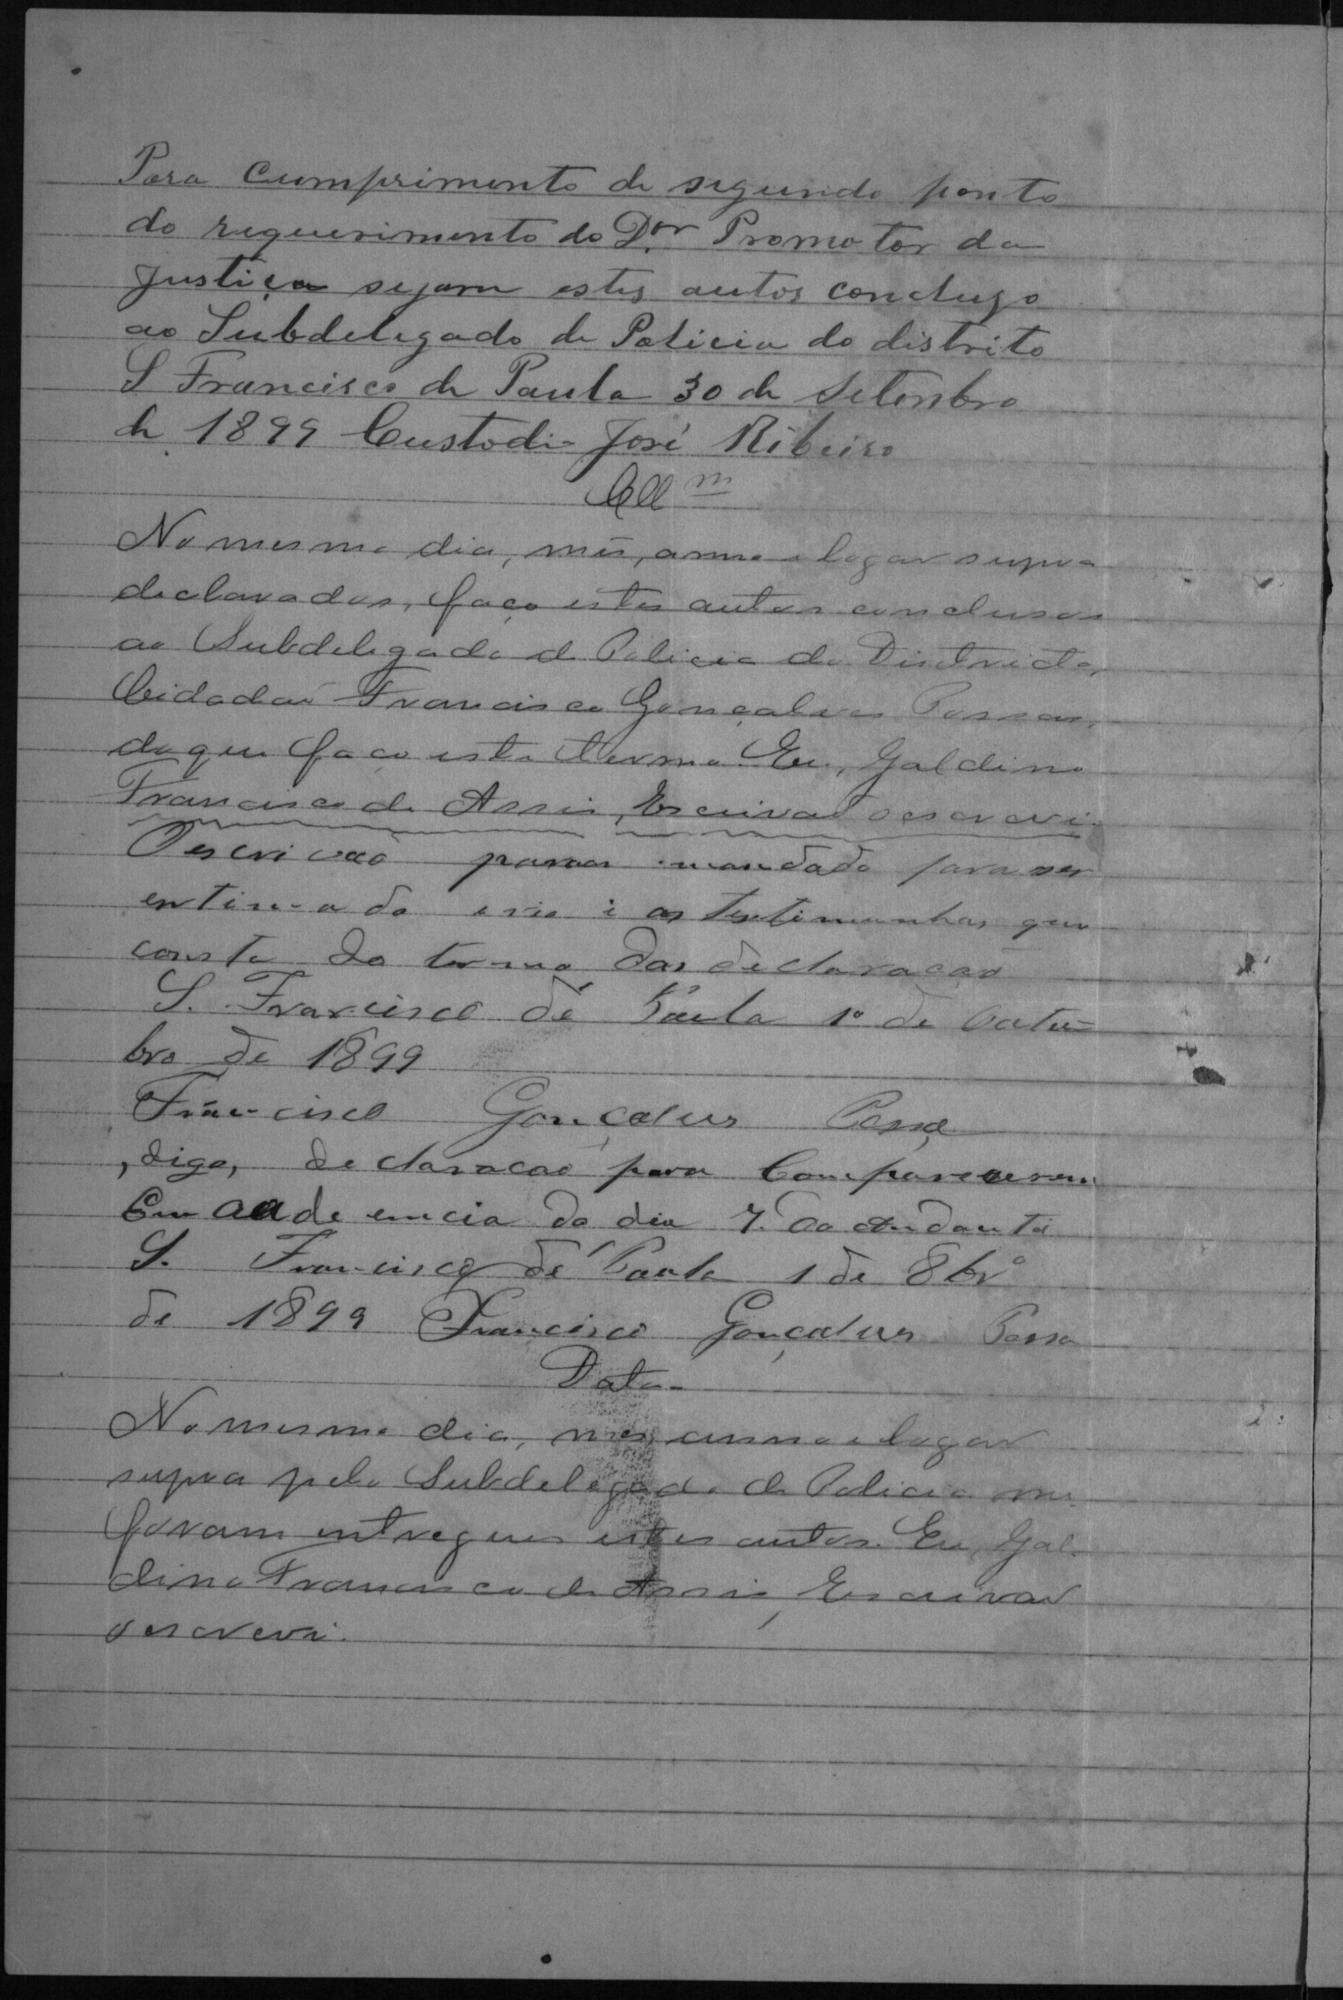 Para cumprimento de segundo ponto
do requerimento do D.or Promotor da
Justiça sejam estes autos concluzo
ao Subdelegado de Policia do distrito
S Francisco de Paula 30 de Setembro
de 1899 Custodio José Ribeiro
Cllm
No mesmo dia, mês, anno e logar supra
declarados, faço estes autos conclusos
ao Subdelegado de Policia do Districto,
Cidadaõ Francisco Gonçalves Possas,
do que faço este termo. Eu, Galdino
Francisco de Assis, Escrivaõ o escrevi.
O escrivaõ mandado para ser
as testimunhas que
conste do termo das declaracaõ
S. Francisco de Paula 1º de Outu-
bro de 1899
Francisco Gonçalves Possa
, digo, declaracaõ para Comparecerem
Em audeencia do dia 7. do andante
S. Francisco de Paula 1 de 8brº
de 1899 Francisco Gonçalves Possa
Data
No mesmo dia, mes, anno e logar
supra pelo Subdelegado de Policia me
foram entregues estes autos. Eu, Gal-
dino Francisco de Assis, Escrivaõ
o escrevi.